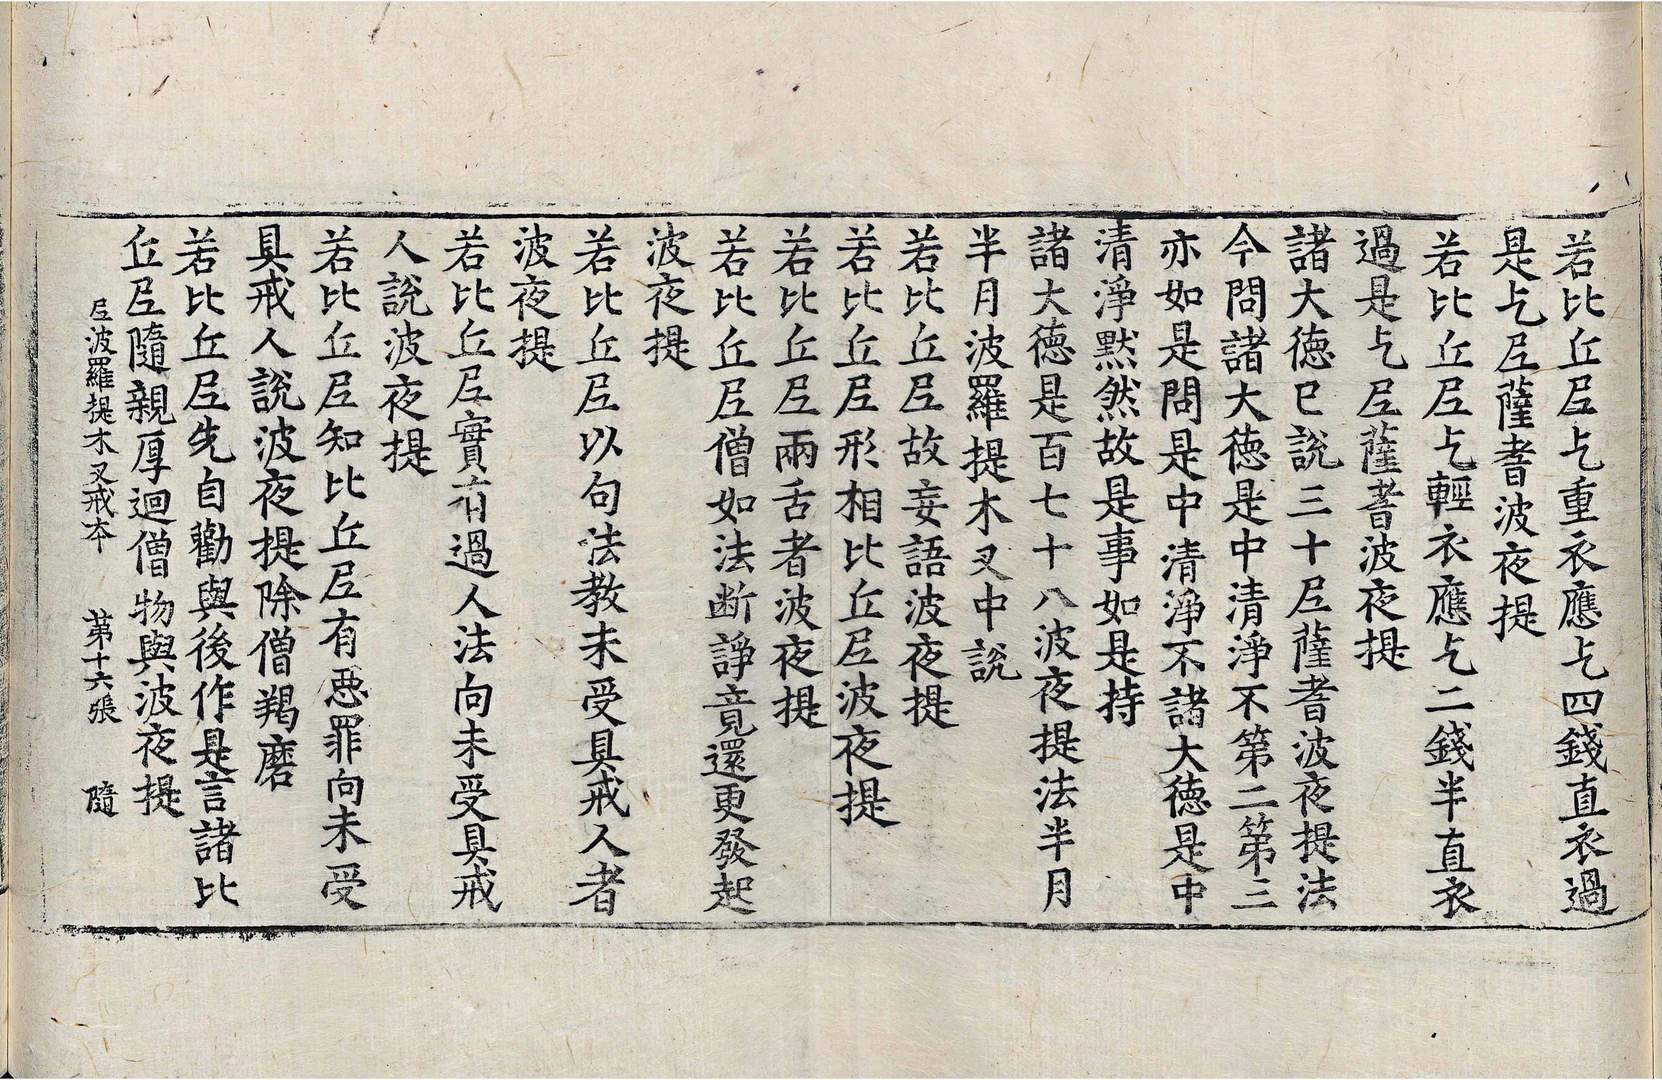 若比丘尼乞重衣應乞四錢直衣過
是乞尼薩耆波夜提
若比丘尼乞輕衣應乞二錢半直衣
過是乞尼薩耆波夜提
諸大德已說三十尼薩耆波夜提法
今問諸大德是中清淨不第二第三
亦如是問是中清淨不諸大德是中
清淨黙然故是事如是持
諸大德是百七十八波夜提法半月
半月波羅提木叉中說
若比丘尼故妄語波夜提
若比丘尼形相比丘尼波夜提
若比丘尼兩舌者波夜提
若比丘尼僧如法断諍竟還更發起
波夜提
若比丘尼以句法教未受具戒人者
波夜提
若比丘尼實有過人法向未受具戒
人說波夜提
若比丘尼知比丘尼有惡罪向未受
具戒人說波夜提除僧羯磨
若比丘尼先自勸與後作是言諸比
丘尼隨親厚迴僧物與波夜提
尼波羅提木叉戒本 第十六張 隨